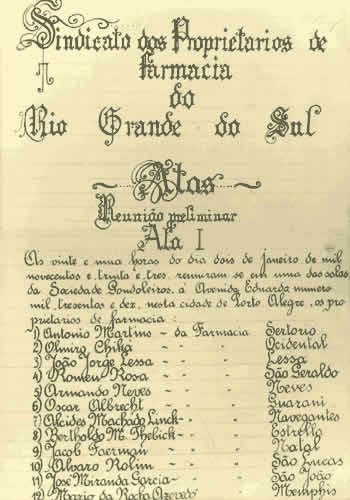 Sindicato dos Proprietarios de
Farmacia
do
Rio Grande do Sul
Atas
Reunião preliminar
Ata I
As vinte e uma horas do dia dois de janeiro de mil
novecentos e trinta e tres, reuniram se em uma das salas
da Sociedade Gondoleiros, á Avenida Eduardo numero
mil, tresentos e dez, nesta cidade de Porto Alegre, os pro
prietarios de farmacia:
1) Antonio Martins - da Farmacia Sertorio
2) Olmiro Chika " " Ocidental
3) João Jorge Lessa " " Lessa
4) Romeu Rosa " " São Geraldo
5) Armando Neves " " Neves
6) Oscar Albrecht " " Guarani
7) Alcides Machado Linck " " Navegantes
8) Bertholdo M. Thebick " " Estrella
9) Jacob Faerman " " Natal
10) Alvaro Rolim " " São Lucas
11) José Miranda Garcia " " São João
Mario da Rocha Azevedo " " Memphis